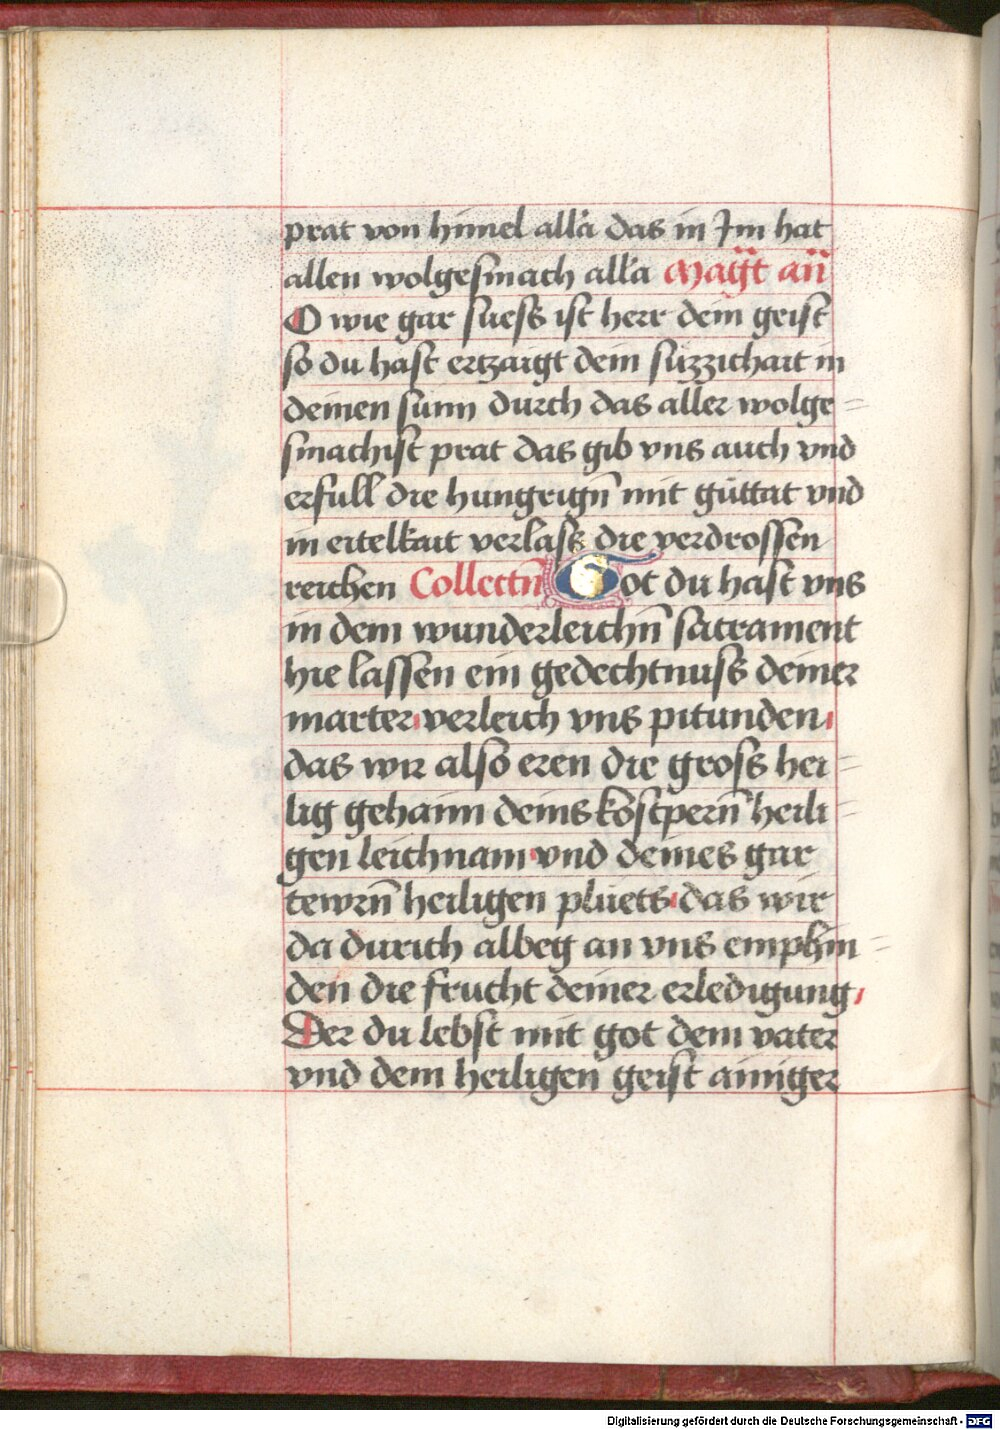 prat von himel alla das in Jm hat
allen wolgesmach alla Magt an̄
O wie gar suess ist herr dein geist
so du hast ertzaigt dein süzzichait in
deinen sunn durch das aller wolge=
smachist prat das gib vns auch vnd
erfull die hungrign̄ mit gůttat vnd
in eitelkait verlass die verdrossen
reichen Collectn̄ Got du hast vns
in dem wunderleichn̄ sacrament
hie lassen ein gedechtnuss deiner
marter verleich vns pitunden
das wir also eren die gross hei=
lig gehaim deins kostpern̄ heili=
gen leichnam vnd deines gar
tewrn̄ heiligen plůets das wir
da durich albeg an vns emphin=
den die frucht deiner erledigung
Der du lebst mit got dem vater
vnd dem heiligen geist ainiger
Digitalisierung gefördert durch die Deutsche Forschungsgemeinschaft - DFG